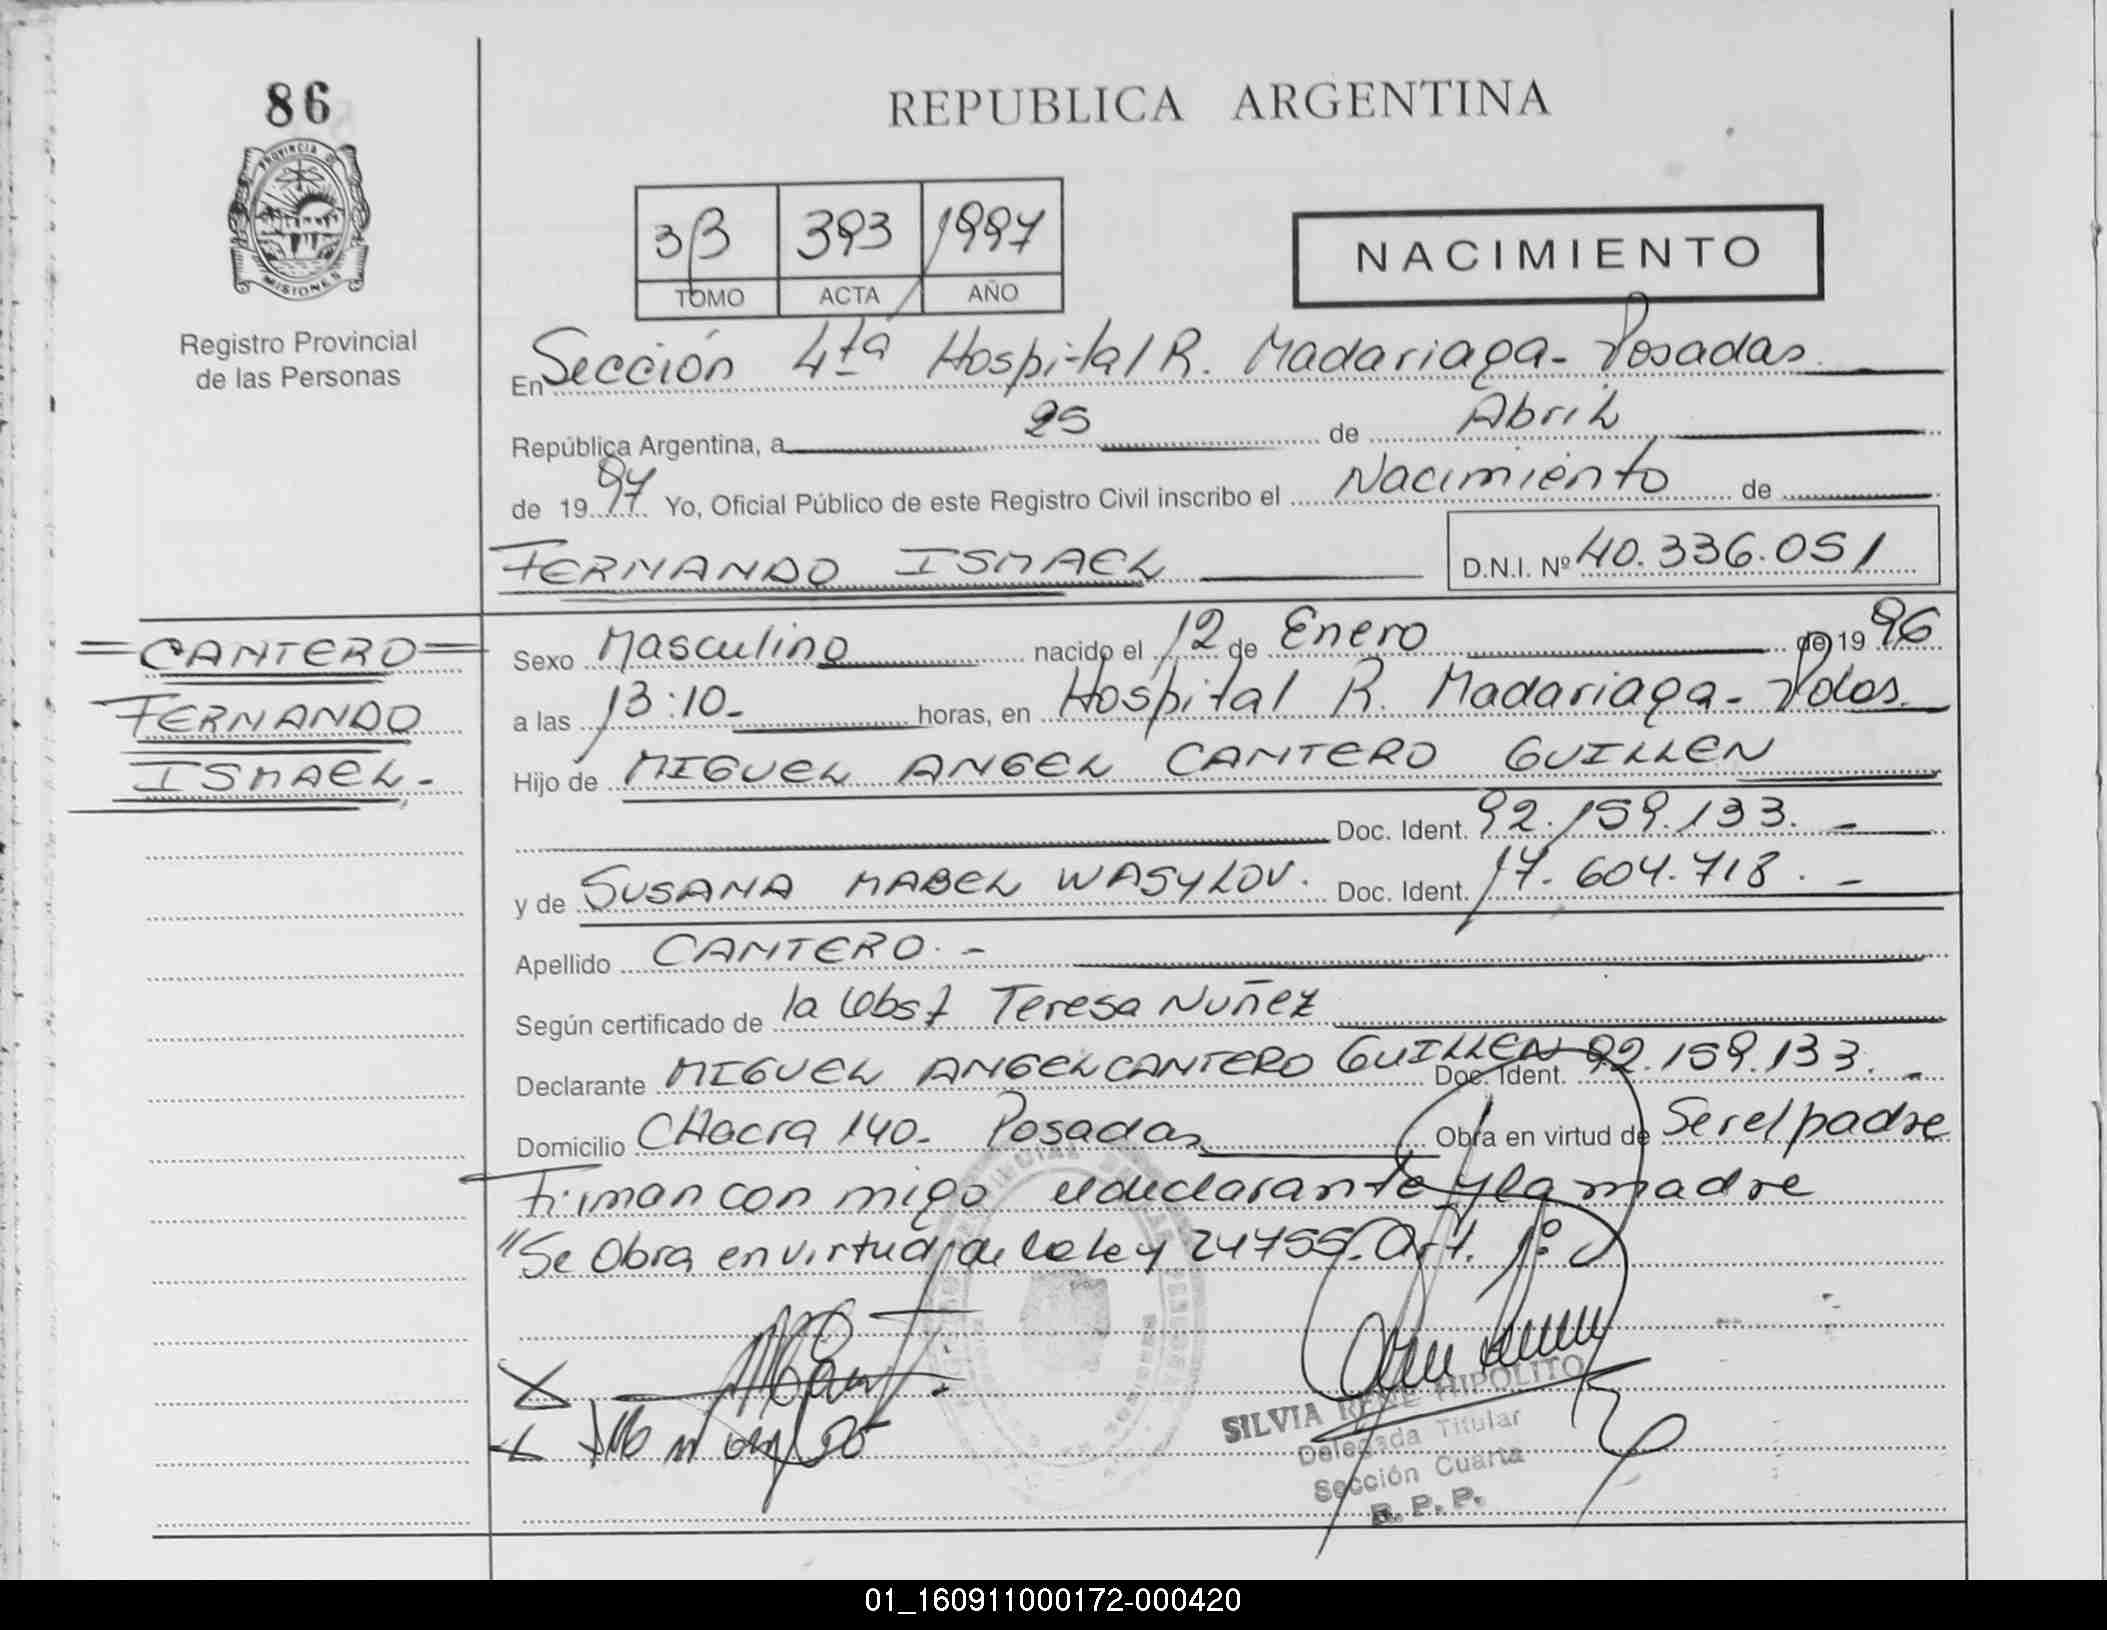 86
REPUBLICA ARGENTINA
PROVINCIA DE
MISIONES
Registro Provincial
de las Personas
3β 393 1997
TOMO ACTA AÑO
NACIMIENTO
En Sección 4ta Hospital R. Madariaga - Posadas.
República Argentina, a 25 de Abril
de 1997 Yo, Oficial Público de este Registro Civil inscribo el Nacimiento de
FERNANDO ISMAEL D.N.I. Nº 40.336.051
=CANTERO=
FERNANDO
ISMAEL.-
Sexo Masculino nacido el 12 de Enero de 1996
a las 13:10- horas, en Hospital R. Madariaga - Pdas.
Hijo de MIGUEL ANGEL CANTERO GUILLEN
Doc. Ident. 92.159.133.-
y de SUSANA MABEL WASYLOV. Doc. Ident. 17.604.718.-
Apellido CANTERO.-
Según certificado de la Obst Teresa Nuñez
Declarante MIGUEL ANGEL CANTERO GUILLEN Doc. Ident. 92.159.133.-
Domicilio CHacra 140- Posadas Obra en virtud de Ser el padre
Firman con migo el declarante y la madre
"Se Obra en virtud de la ley 24755. Art. 1º
SILVIA RENE HIPOLITO
Delegada Titular
Sección Cuarta
R. P. P.
01_160911000172-000420